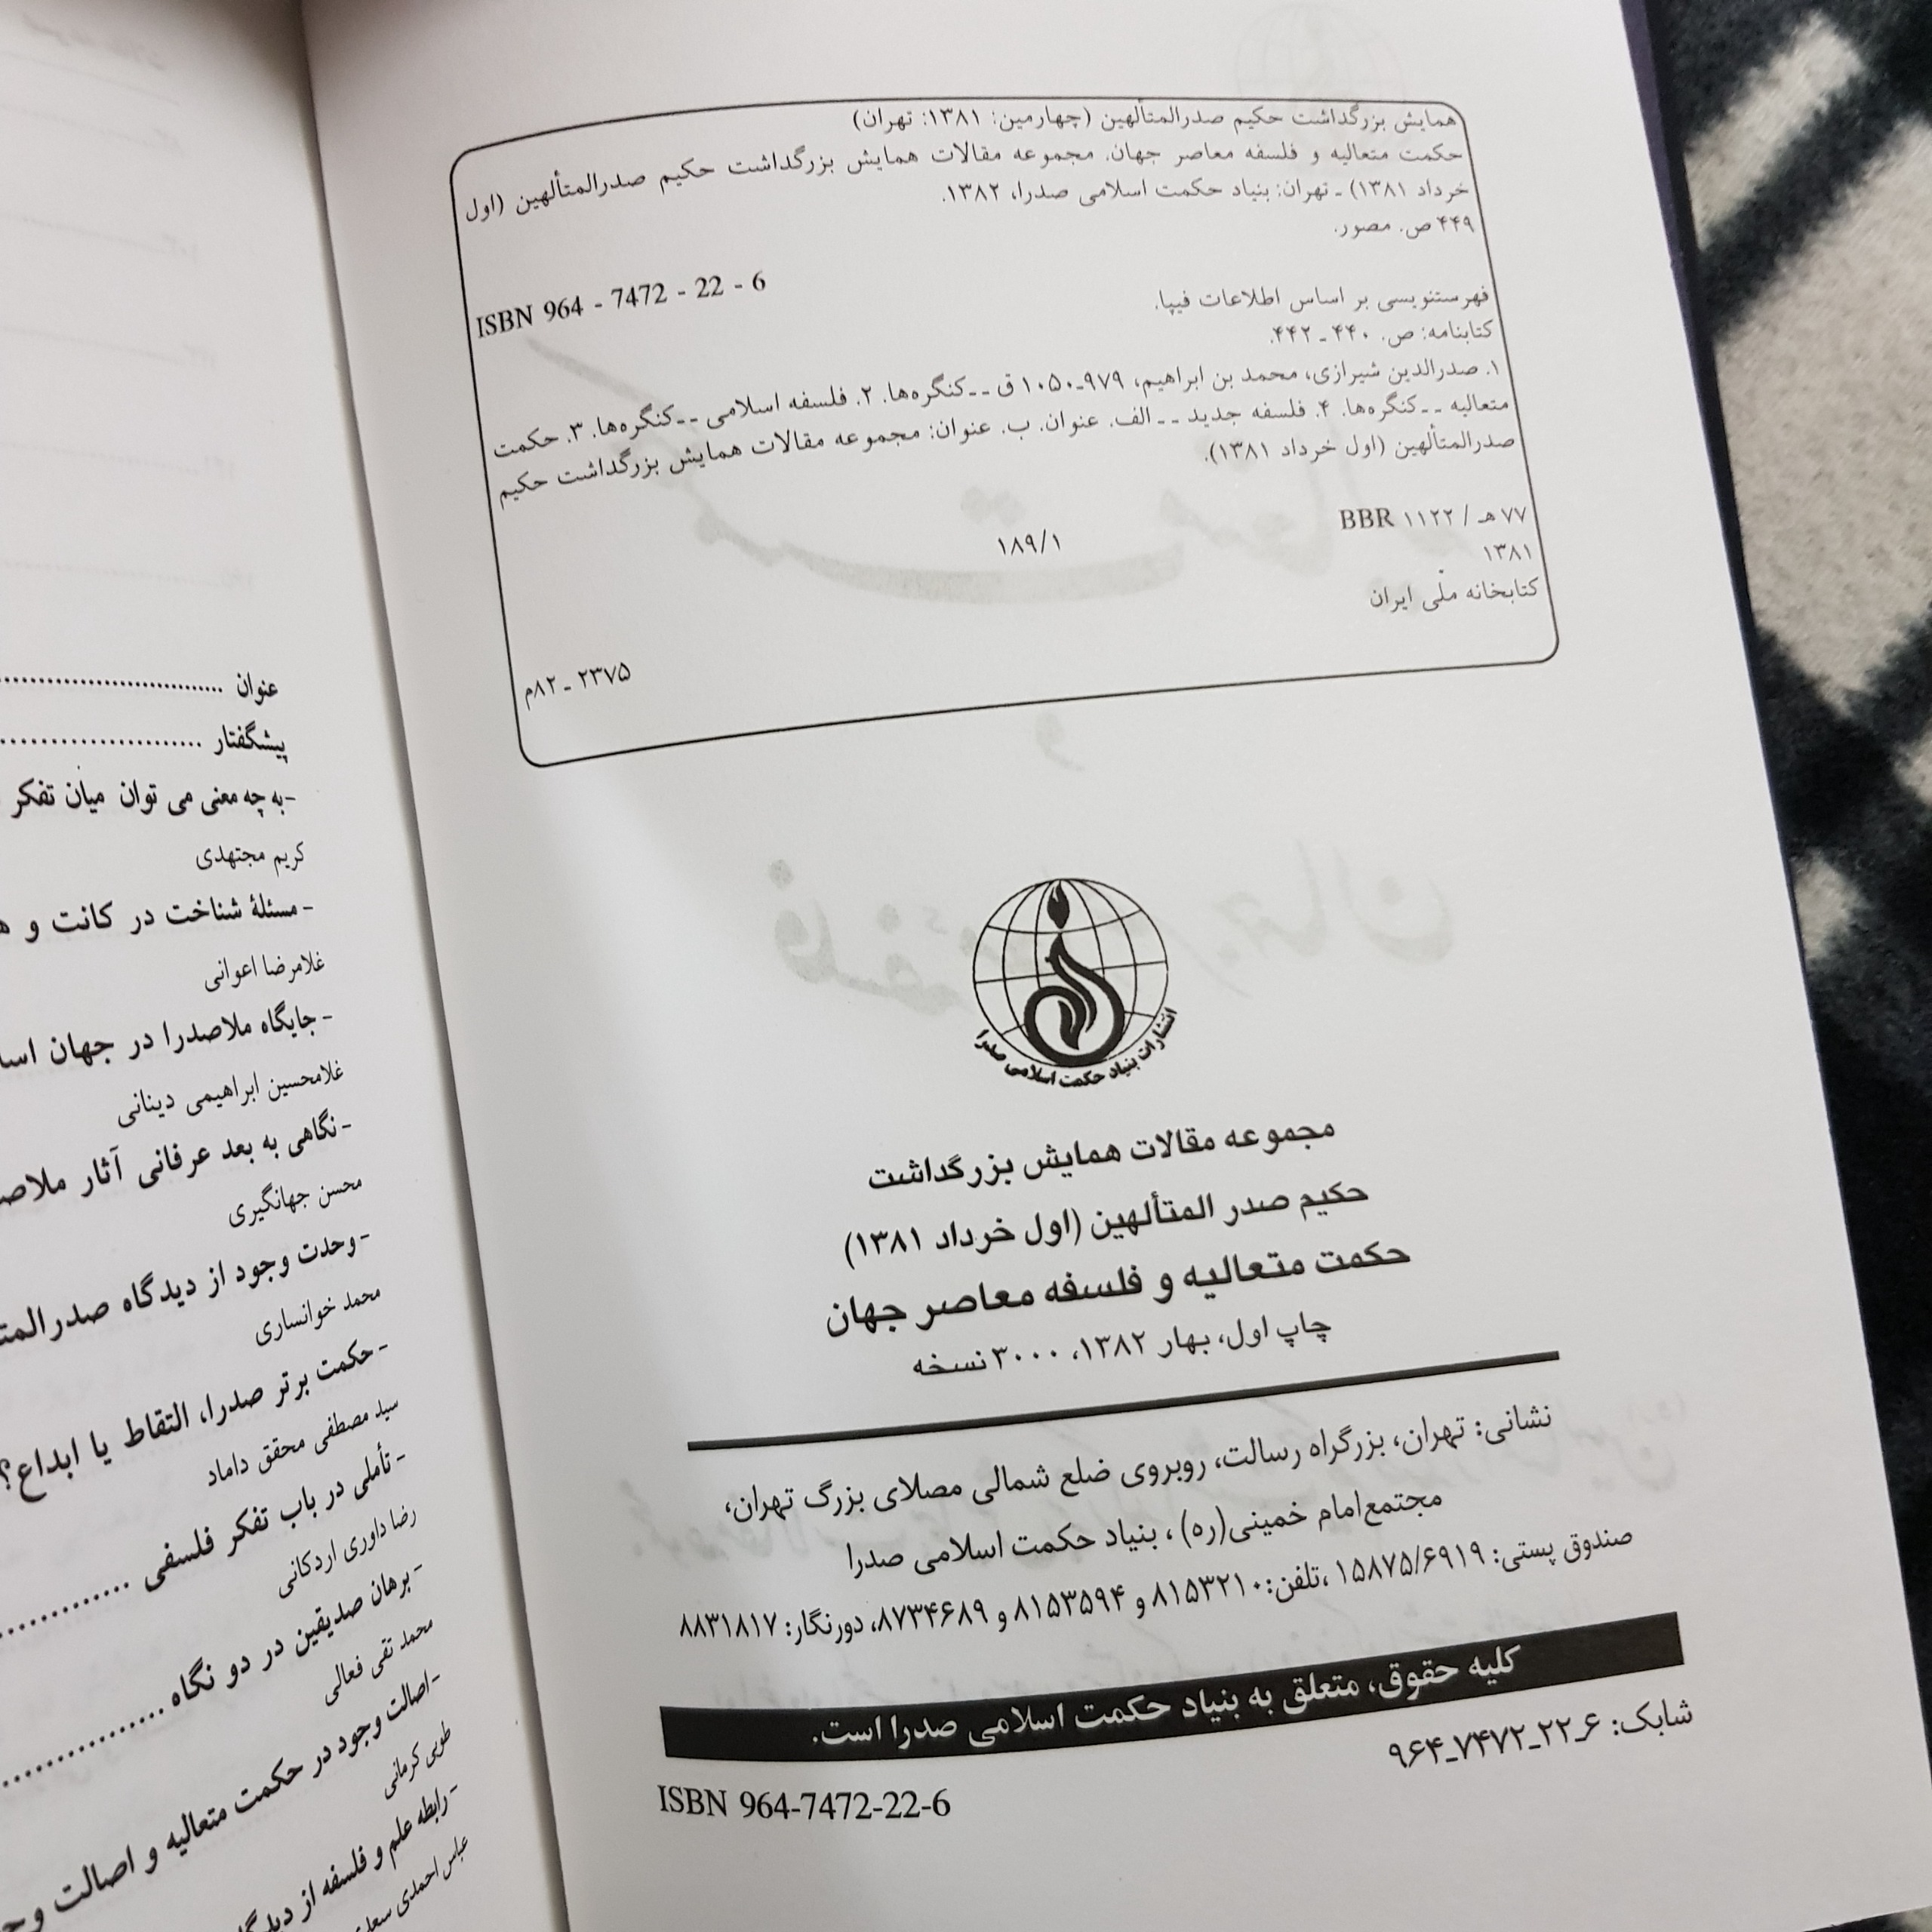 همایش بزرگداشت حکیم صدرالمتألهین (چهارمین: ۱۳۸۱: تهران)
حکمت متعالیه و فلسفه معاصر جهان. مجموعه مقالات همایش بزرگداشت حکیم صدرالمتألهین (اول
خرداد ۱۳۸۱) ـ تهران: بنیاد حکمت اسلامی صدرا، ۱۳۸۲.
۴۴۹ ص. مصور.
ISBN 964 - 7472 - 22 - 6
فهرستنویسی بر اساس اطلاعات فیپا.
کتابنامه: ص. ۴۴۰ ـ ۴۴۲.
۱. صدرالدین شیرازی، محمد بن ابراهیم، ۹۷۹ـ۱۰۵۰ ق ــ کنگره‌ها. ۲. فلسفه اسلامی ــ کنگره‌ها. ۳. حکمت
متعالیه ــ کنگره‌ها. ۴. فلسفه جدید ــ الف. عنوان. ب. عنوان: مجموعه مقالات همایش بزرگداشت حکیم
صدرالمتألهین (اول خرداد ۱۳۸۱).
۷۷ هـ / ۱۱۲۲ BBR
۱۸۹/۱
۱۳۸۱
کتابخانه ملّی ایران
۲۳۷۵ ـ ۸۲م
انتشارات بنیاد حکمت اسلامی صدرا
مجموعه مقالات همایش بزرگداشت
حکیم صدر المتألهین (اول خرداد ۱۳۸۱)
حکمت متعالیه و فلسفه معاصر جهان
چاپ اول، بهار ۱۳۸۲، ۳۰۰۰ نسخه
نشانی: تهران، بزرگراه رسالت، روبروی ضلع شمالی مصلای بزرگ تهران،
مجتمع امام خمینی(ره)، بنیاد حکمت اسلامی صدرا
صندوق پستی: ۱۵۸۷۵/۶۹۱۹، تلفن: ۸۱۵۳۲۱۰ و ۸۱۵۳۵۹۴ و ۸۷۳۴۶۸۹، دورنگار: ۸۸۳۱۸۱۷
کلیه حقوق، متعلق به بنیاد حکمت اسلامی صدرا است.
شابک: ۶ـ۲۲ـ۷۴۷۲ـ۹۶۴
ISBN 964-7472-22-6
عنوان
پیشگفتار
-به چه معنی می توان میان تفکر
کریم مجتهدی
-مسئلهٔ شناخت در کانت و
غلامرضا اعوانی
-جایگاه ملاصدرا در جهان
غلامحسین ابراهیمی دینانی
-نگاهی به بعد عرفانی آثار
محسن جهانگیری
-وحدت وجود از دیدگاه
محمد خوانساری
-حکمت برتر صدرا، التقاط یا ابداع؟
سید مصطفی محقق داماد
-تأملی در باب تفکر فلسفی
رضا داوری اردکانی
-برهان صدیقین در دو نگاه
محمد تقی فعالی
-اصالت وجود در حکمت متعالیه و اصالت
طوبی کرمانی
-رابطه علم و فلسفه از
عباس احمدی